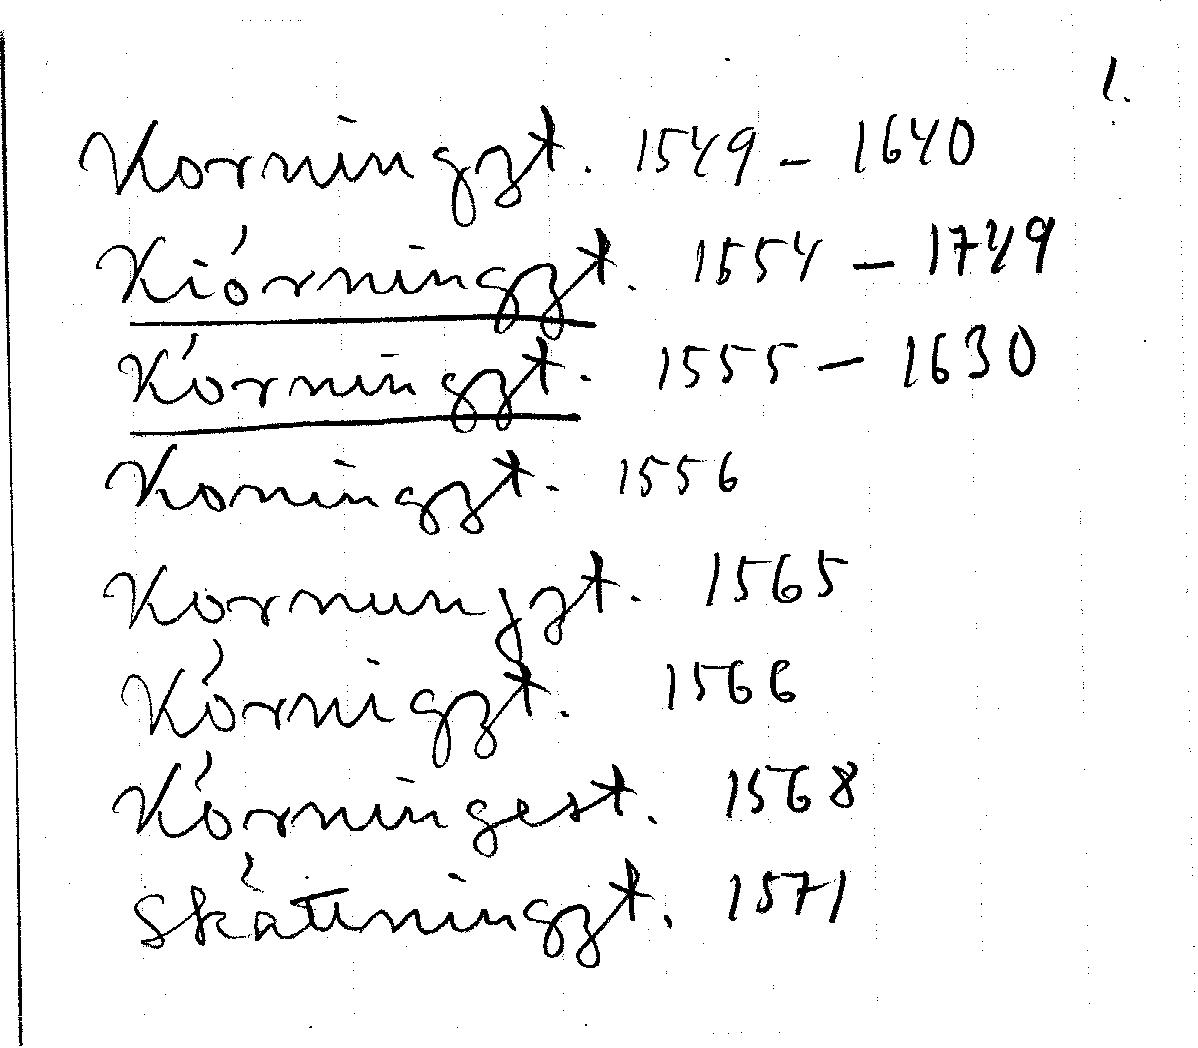 1.
Korningzt. 1549 – 1640
Kiórningzt. 1554 – 1749
Kórningzt. 1555 – 1630
Koningzt. 1556
Kornungzt. 1565
Kórnigzt. 1566
Kórningest. 1568
Skátningzt. 1571